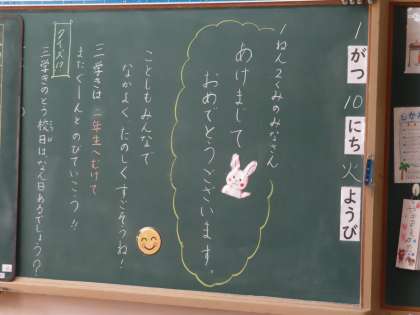 1がつ10にち火ようび
1ねん2くみのみなさん
あけまして
おめでとうございます。
ことしもみんなで
なかよく、たのしくすごそうね!
三学きは、二年生へむけて
またぐーんとのびていこう!!
クイズ!?
三学きのとう校日は、なん日あるでしょう?